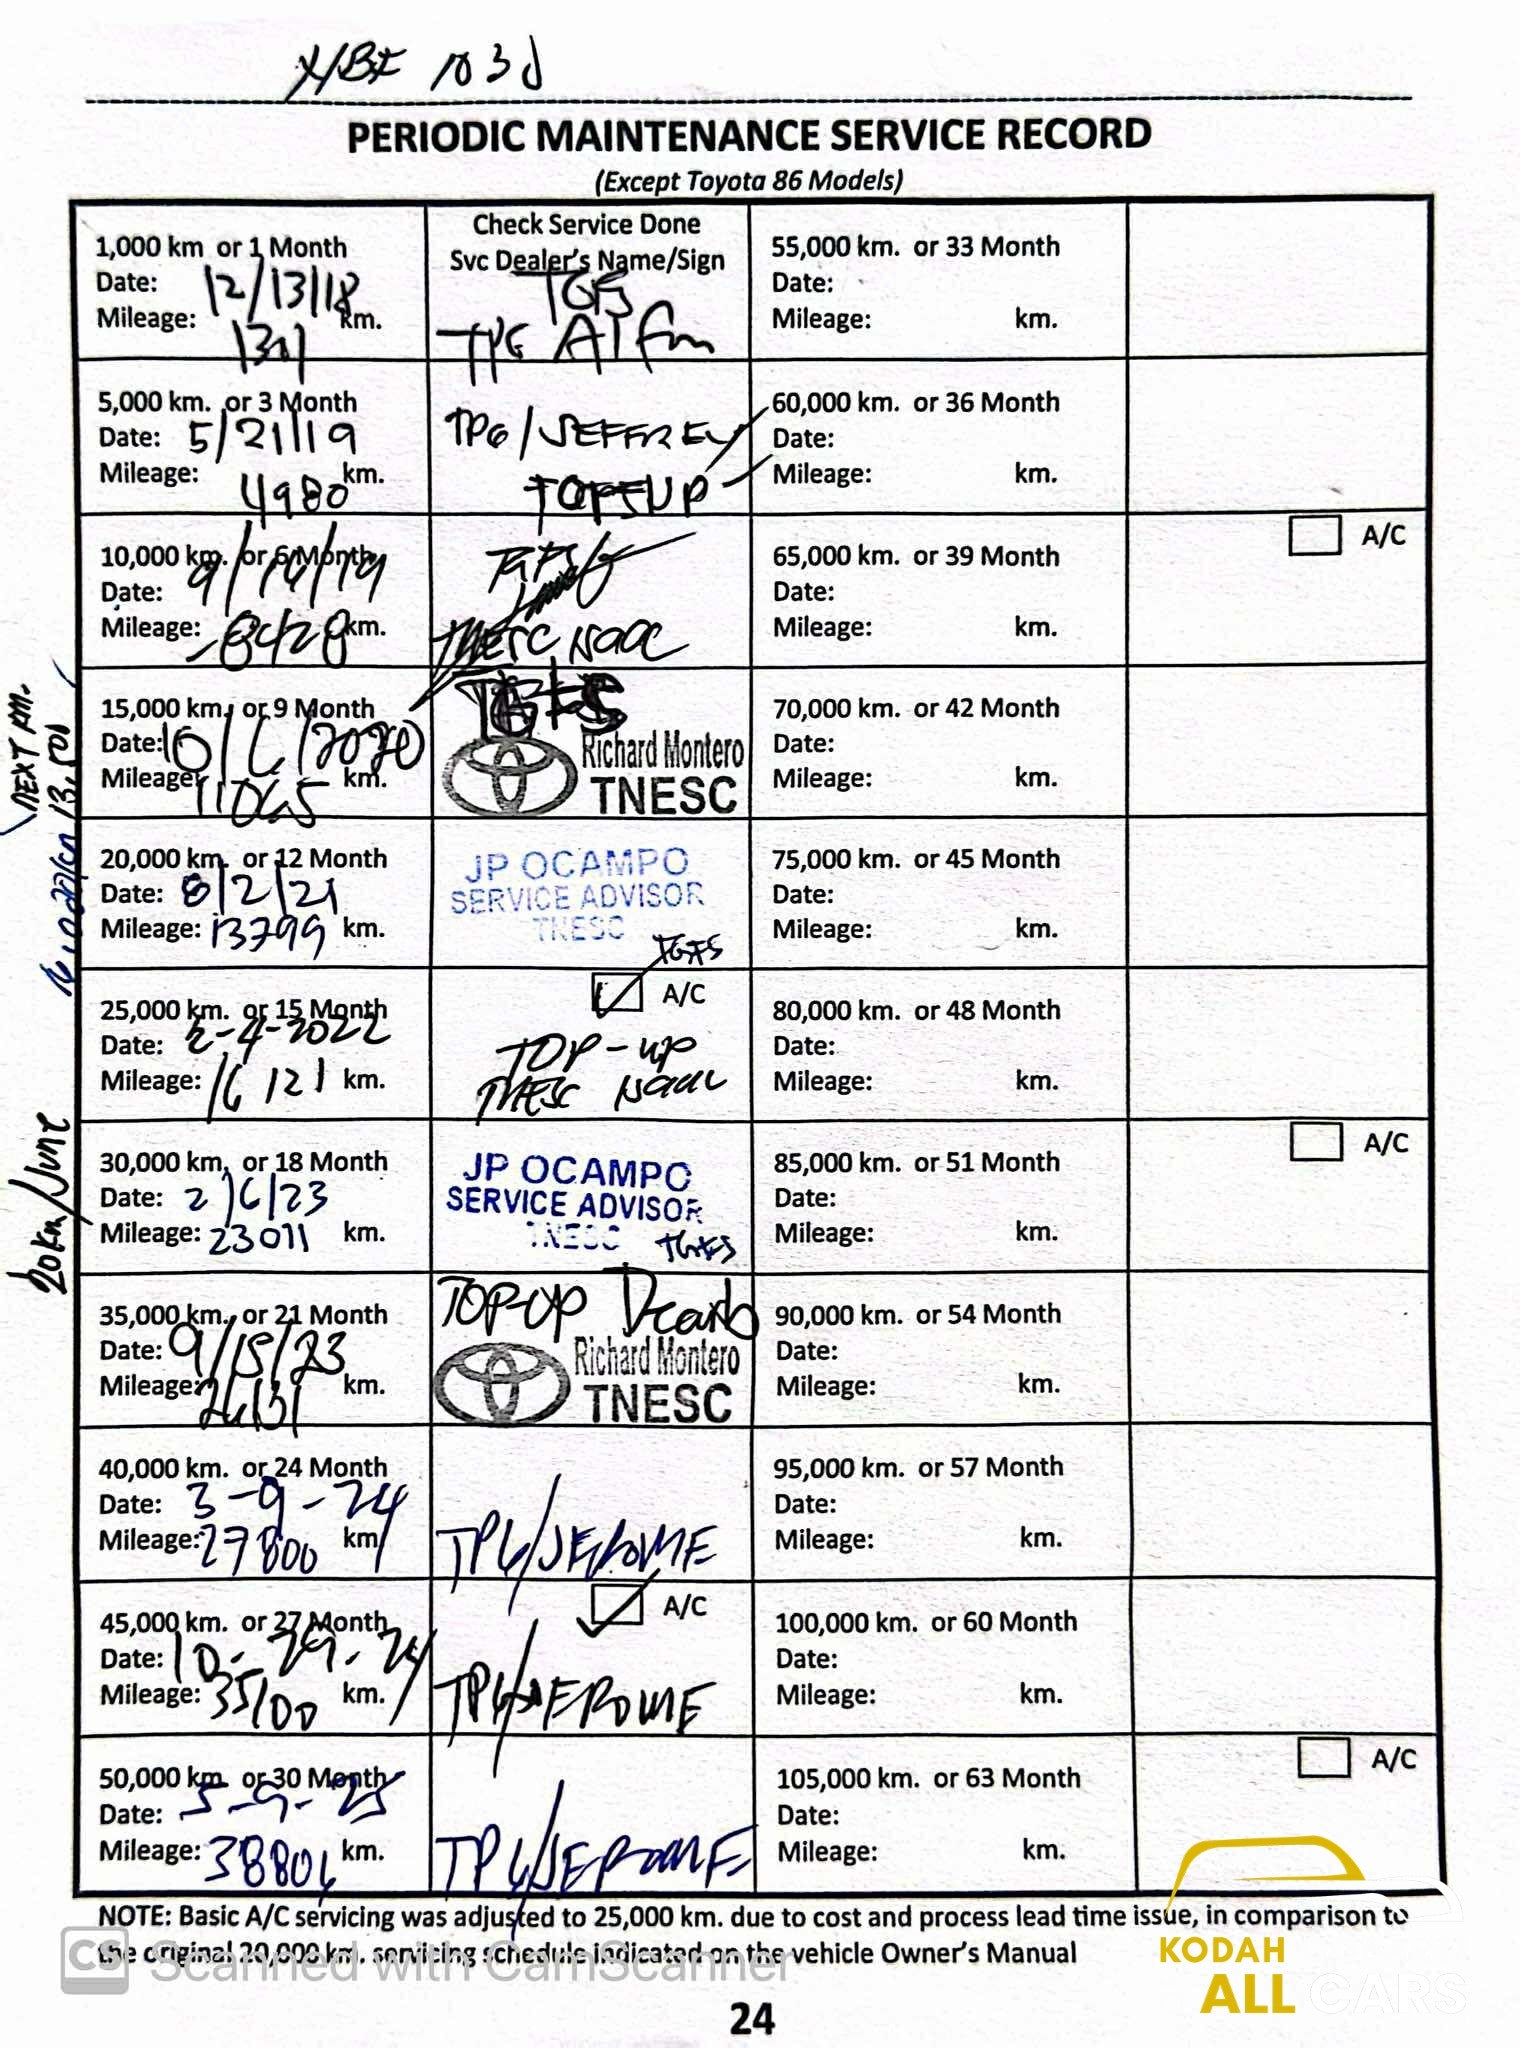 103J
PERIODIC MAINTENANCE SERVICE RECORD
(Except Toyota 86 Models)
1,000 km or 1 Month
Date: 12/13/18
Mileage: km.
Check Service Done
Svc Dealer's Name/Sign
5,000 km. or 3 Month
Date: 5/21/19
Mileage: 4980 km.
TPG/JEFFREY
TOP-UP
10,000 km. or 6 Month
Date: 9/14/19
Mileage: 8428 km.
TNESC
15,000 km. or 9 Month
Date: 2020
Mileage: 11065 km.
TGFS
Richard Montero
TNESC
20,000 km. or 12 Month
Date: 8/2/21
Mileage: 13799 km.
JP OCAMPO
SERVICE ADVISOR
TNESC
TGFS
25,000 km. or 15 Month
Date: 2-4-2022
Mileage: 16121 km.
A/C
TOP-UP
TNESC
30,000 km. or 18 Month
Date: 2/6/23
Mileage: 23011 km.
JP OCAMPO
SERVICE ADVISOR
TNESC
TGFS
35,000 km. or 21 Month
Date: 9/15/23
Mileage: km.
TOP-UP Decarb
Richard Montero
TNESC
40,000 km. or 24 Month
Date: 3-9-24
Mileage: 27800 km
TPG/JEROME
45,000 km. or 27 Month
Date: 10-29-24
Mileage: 35100 km.
A/C
TPG/JEROME
50,000 km. or 30 Month
Date: 5-9-25
Mileage: 38806 km.
TPG/JEROME
55,000 km. or 33 Month
Date:
Mileage: km.
60,000 km. or 36 Month
Date:
Mileage: km.
65,000 km. or 39 Month
Date:
Mileage: km.
A/C
70,000 km. or 42 Month
Date:
Mileage: km.
75,000 km. or 45 Month
Date:
Mileage: km.
80,000 km. or 48 Month
Date:
Mileage: km.
85,000 km. or 51 Month
Date:
Mileage: km.
A/C
90,000 km. or 54 Month
Date:
Mileage: km.
95,000 km. or 57 Month
Date:
Mileage: km.
100,000 km. or 60 Month
Date:
Mileage: km.
105,000 km. or 63 Month
Date:
Mileage: km.
A/C
NEXT KM.
20km/June
NOTE: Basic A/C servicing was adjusted to 25,000 km. due to cost and process lead time issue, in comparison to
the original 20,000 km. servicing schedule indicated on the vehicle Owner's Manual
CS Scanned with CamScanner
24
KODAH
ALL CARS